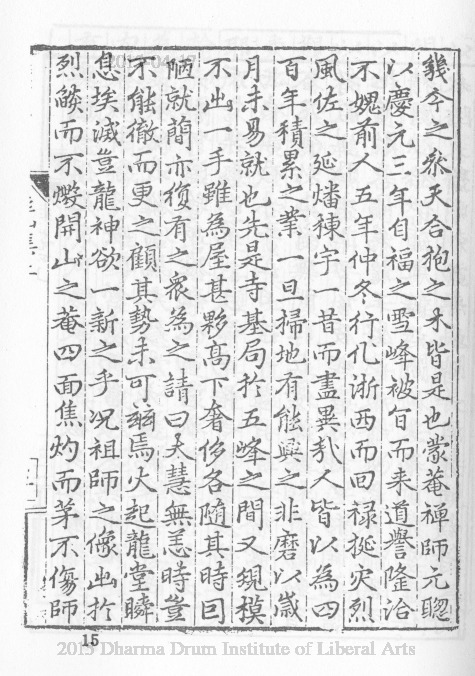 幾今之參天合抱之木皆是也蒙菴禪師元聦
以慶元三年自福之雪峰被旨而来道譽隆洽
不媿前人五年仲冬行化浙西而回禄挺灾烈
風佐之延燔棟宇一昔而盡異哉人皆以為四
百年積累之業一旦掃地有能興之非磨以歲
月未易就也先是寺基局於五峰之間又䂓模
不出一手雖為屋甚夥髙下奢侈各隨其時囙
陋就簡亦復有之衆為之請曰大慧無恙時豈
不能徹而更之顧其勢未可爾焉火起龍堂瞬
息埃滅豈龍神欲一新之乎况祖師之像出於
烈燄而不燬開山之菴四面焦灼而茅不傷師
15
2015 Dharma Drum Institute of Liberal Arts